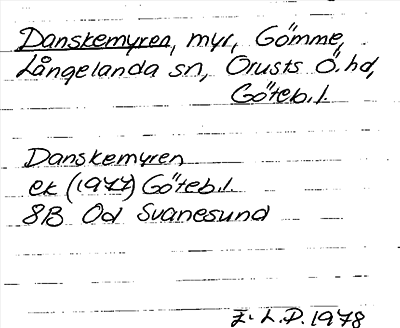 Danskemyren, myr, Gömme,
Långelanda sn, Orusts Ö. hd,
Göteb. l.
Danskemyren
ek (1977) Göteb. l.
8B Od Svanesund
L. D. 1978